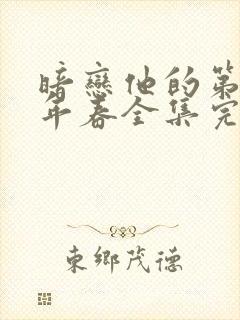 暗戀他的第
年春全集完
東鄉茂德